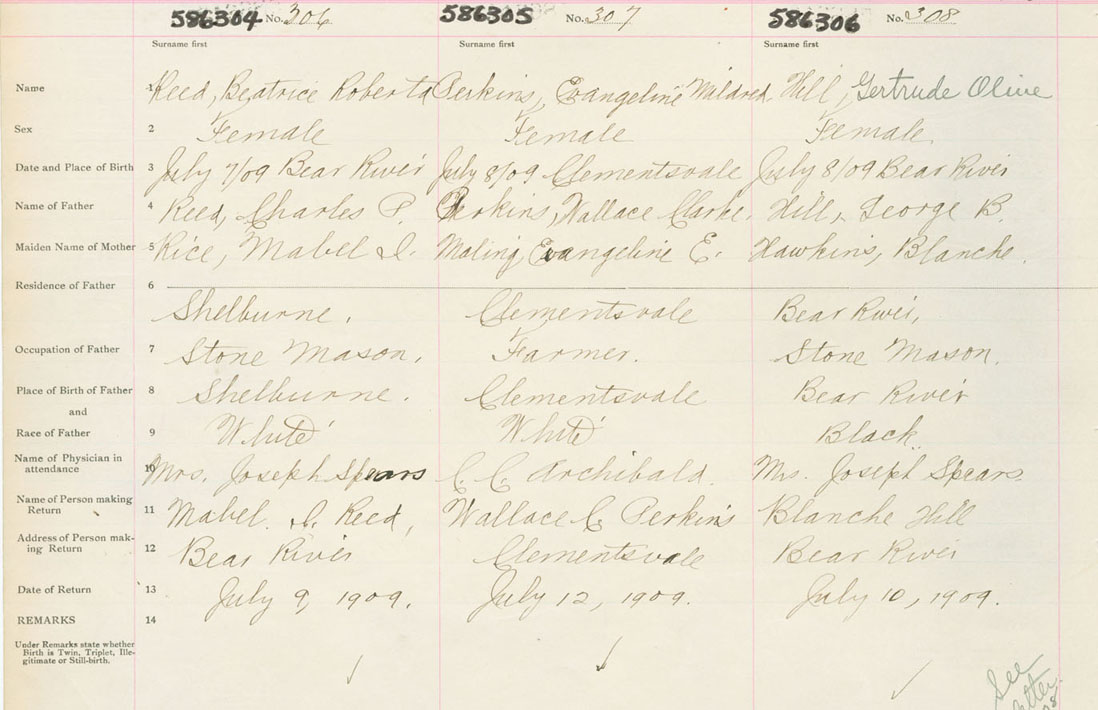 586304 No. 306 586305 No. 307 586306 No. 308
Surname first Surname first Surname first
Name 1 Reed, Beatrice Roberta Perkins, Evangeline Mildred Hill, Gertrude Olive
Sex 2 Female Female Female
Date and Place of Birth 3 July 7/09 Bear River July 8/09 Clementsvale July 8/09 Bear River
Name of Father 4 Reed, Charles P. Perkins, Wallace Clarke. Hill, George B.
Maiden Name of Mother 5 Rice, Mabel I. Maling Evangeline E. Hawkins, Blanche.
Residence of Father 6
Shelburne. Clementsvale Bear River,
Occupation of Father 7 Stone Mason. Farmer. Stone Mason.
Place of Birth of Father 8 Shelburne. Clementsvale Bear River
and
Race of Father 9 White White Black
Name of Physician in
attendance 10 Mrs. Joseph Spears C. C. Archibald. Mrs. Joseph Spears
Name of Person making
Return 11 Mabel. I. Reed, Wallace C. Perkins Blanche Hill
Address of Person mak-
ing Return 12 Bear River Clementsvale Bear River
Date of Return 13 July 9, 1909. July 12, 1909. July 10, 1909.
REMARKS 14
Under Remarks state whether
Birth is Twin, Triplet, Ille-
gitimate or Still-birth.
See